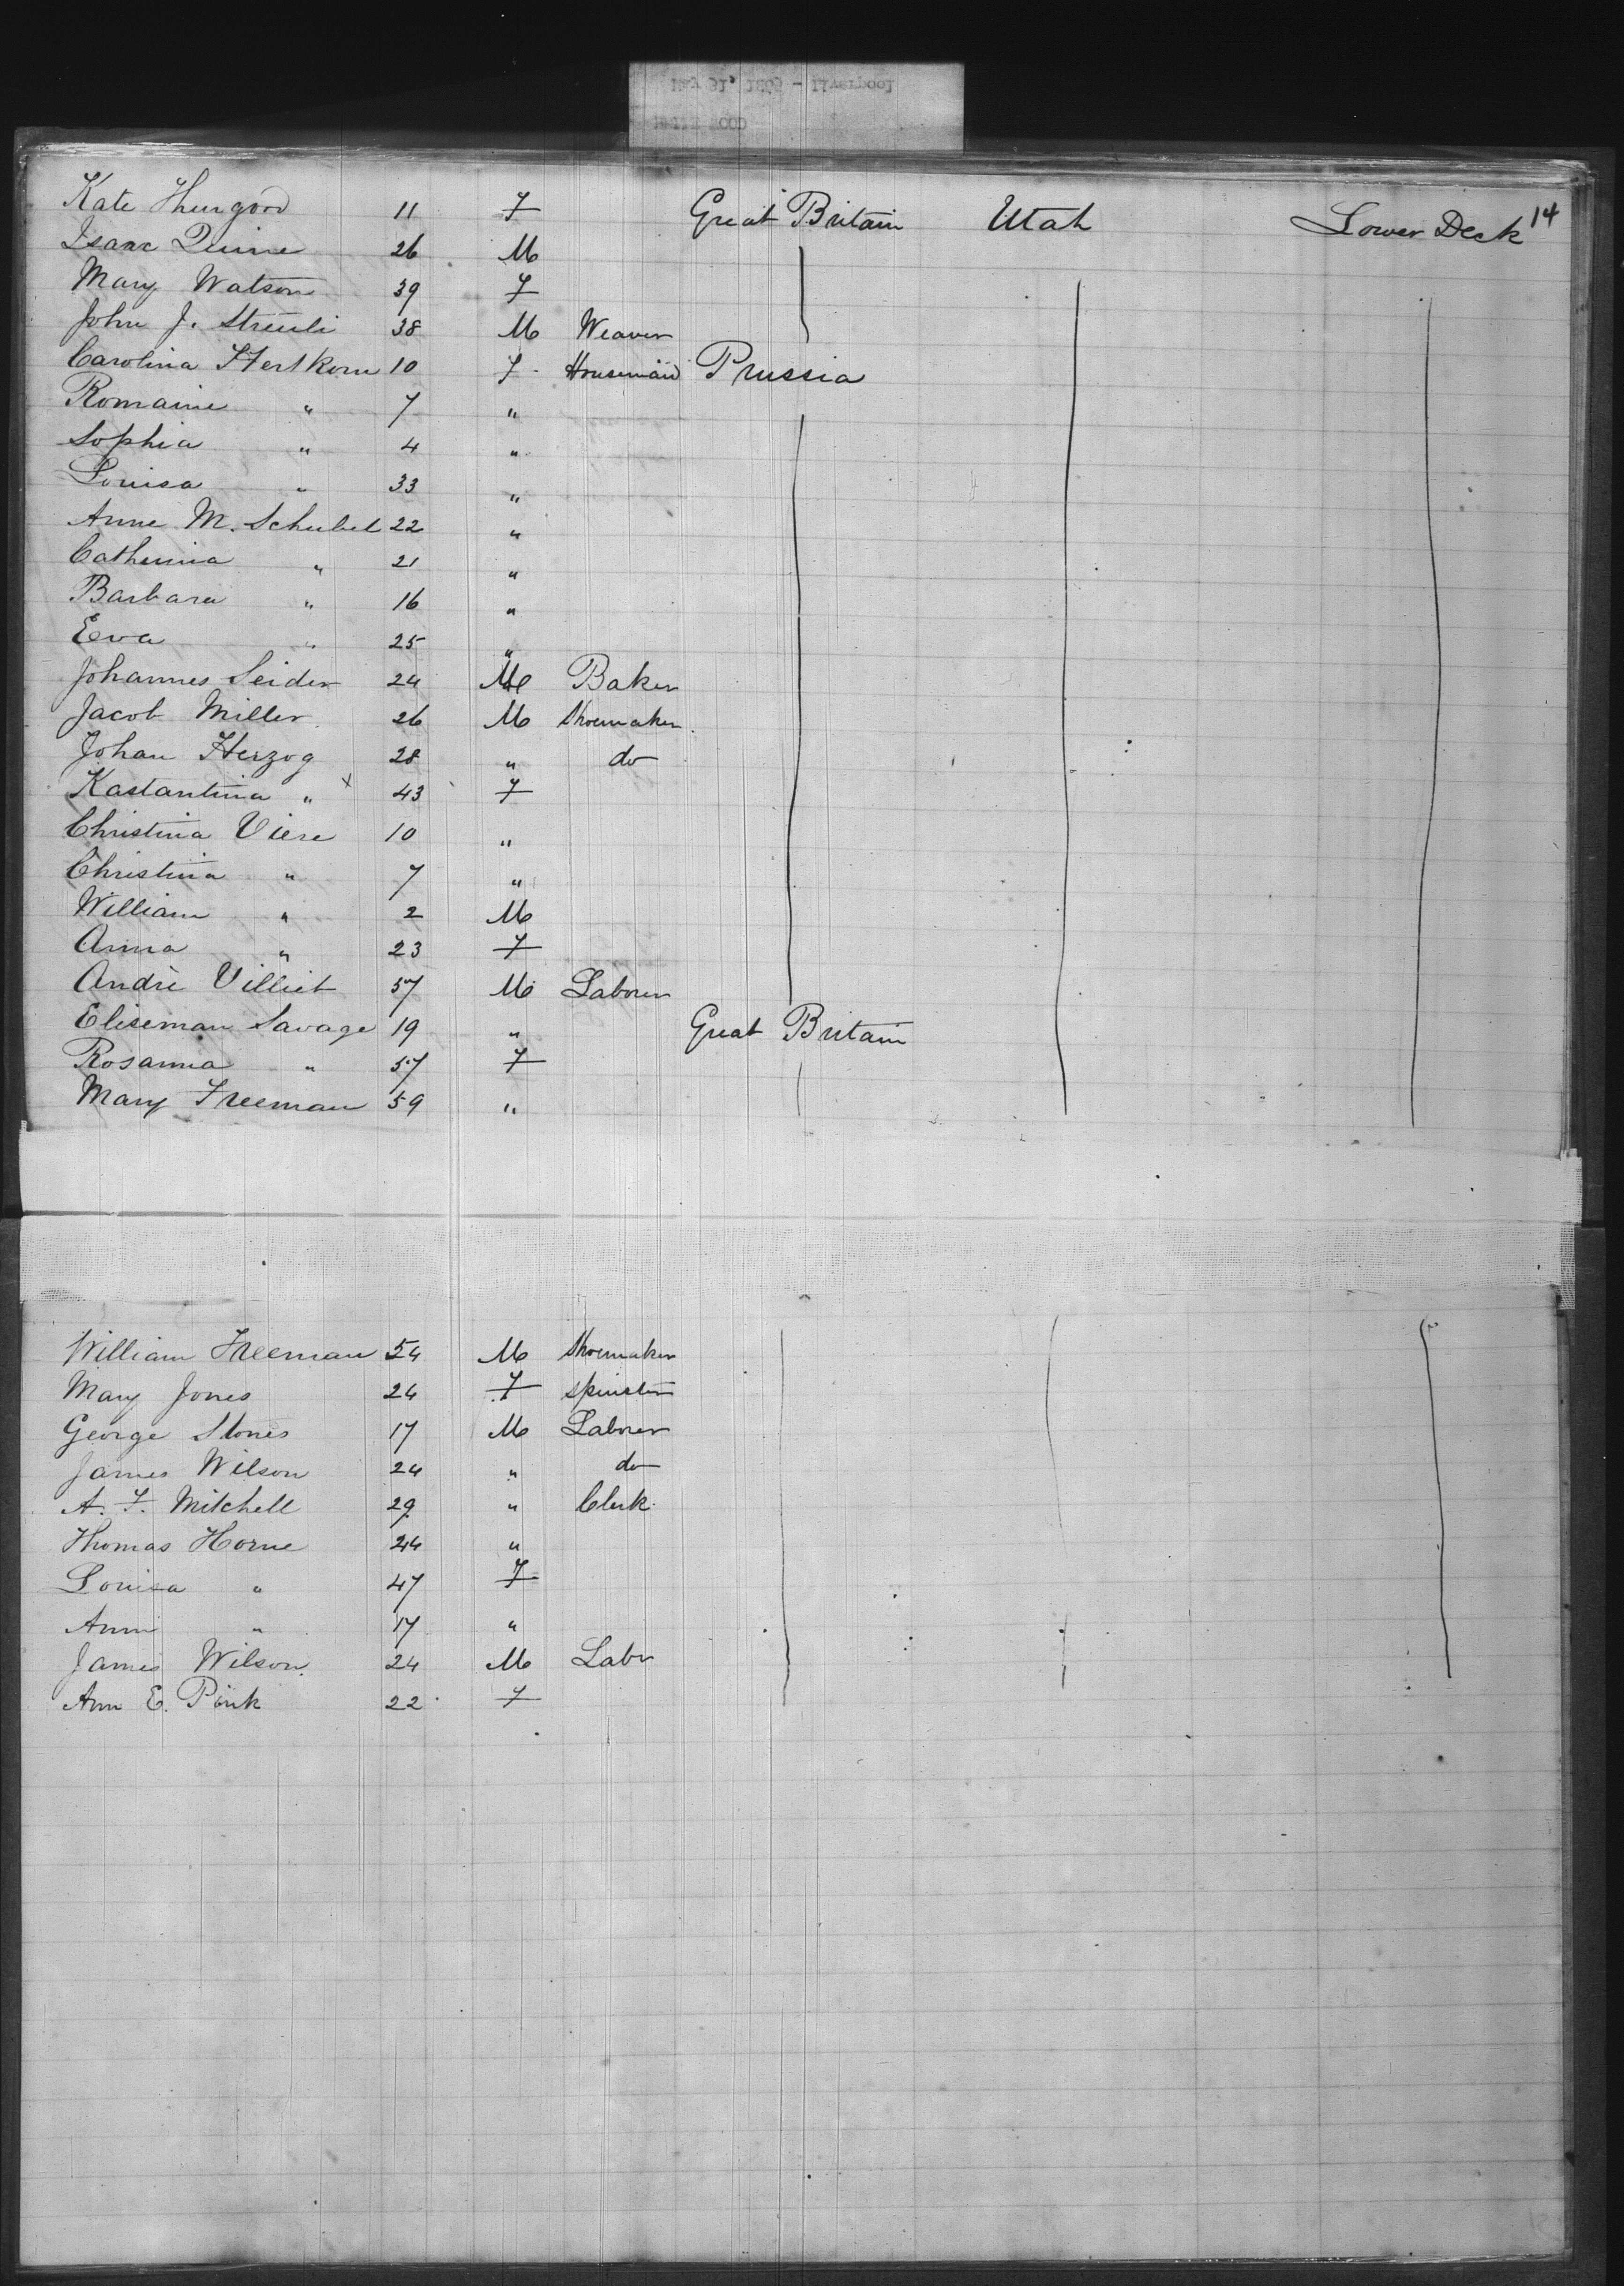 May 31, 1865 - Liverpool
BELLE WOOD
14
Kate Thurgood 11 F Great Britain Utah Lower Deck
Isaac Quine 26 M
Mary Watson 39 F
John J. Struli 38 M Weaver
Carolina Hertkorn 10 F Housemaid Prussia
Romaine " 7 "
Sophia " 4 "
Louisa " 33 "
Anne M. Schubel 22 "
Catherina " 21 "
Barbara " 16 "
Eva " 25 "
Johannes Seider 24 M Baker
Jacob Miller 26 M Shoemaker
Johan Herzog 28 " do
Kastantina " x 43 F
Christina Viere 10 "
Christina " 7 "
William " 2 M
Anna " 23 F
Andrè Villiet 57 M Laborer
Eliseman Savage 19 " Great Britain
Rosanna " 57 F
Mary Freeman 59 "
William Freeman 54 M Shoemaker
Mary Jones 24 F Spinster
George Stones 17 M Laborer
James Wilson 24 " do
A. F. Mitchell 29 " Clerk
Thomas Horne 44 "
Louisa " 47 F
Ann " 17 "
James Wilson 24 M Labr
Ann E. Pink 22 F